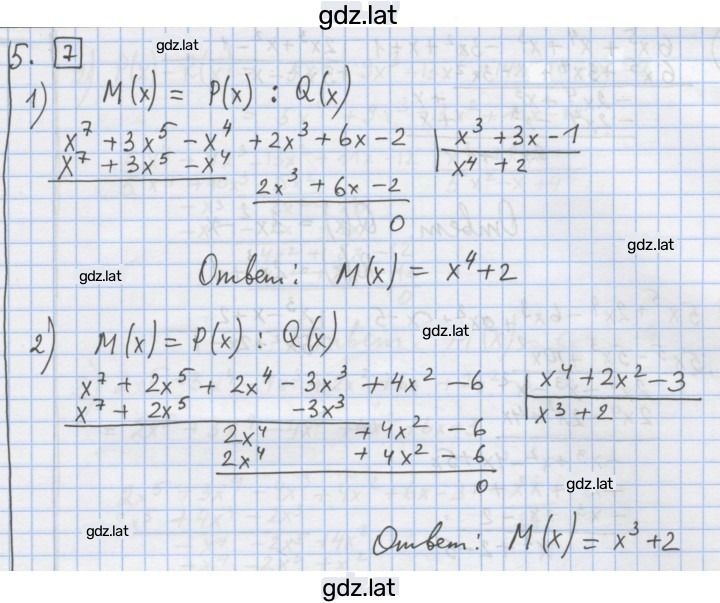 gdz.lat
5. 7
gdz.lat
1) M(x) = P(x) : Q(x)
x⁷ + 3x⁵ - x⁴ + 2x³ + 6x - 2 | x³ + 3x - 1
x⁷ + 3x⁵ - x⁴ x⁴ + 2
2x³ + 6x - 2
0
gdz.lat
gdz.lat
Ответ: M(x) = x⁴ + 2
gdz.lat
2) M(x) = P(x) : Q(x)
x⁷ + 2x⁵ + 2x⁴ - 3x³ + 4x² - 6 | x⁴ + 2x² - 3
x⁷ + 2x⁵ - 3x³ x³ + 2
2x⁴ + 4x² - 6
2x⁴ + 4x² - 6
0
gdz.lat
gdz.lat
Ответ: M(x) = x³ + 2
gdz.lat